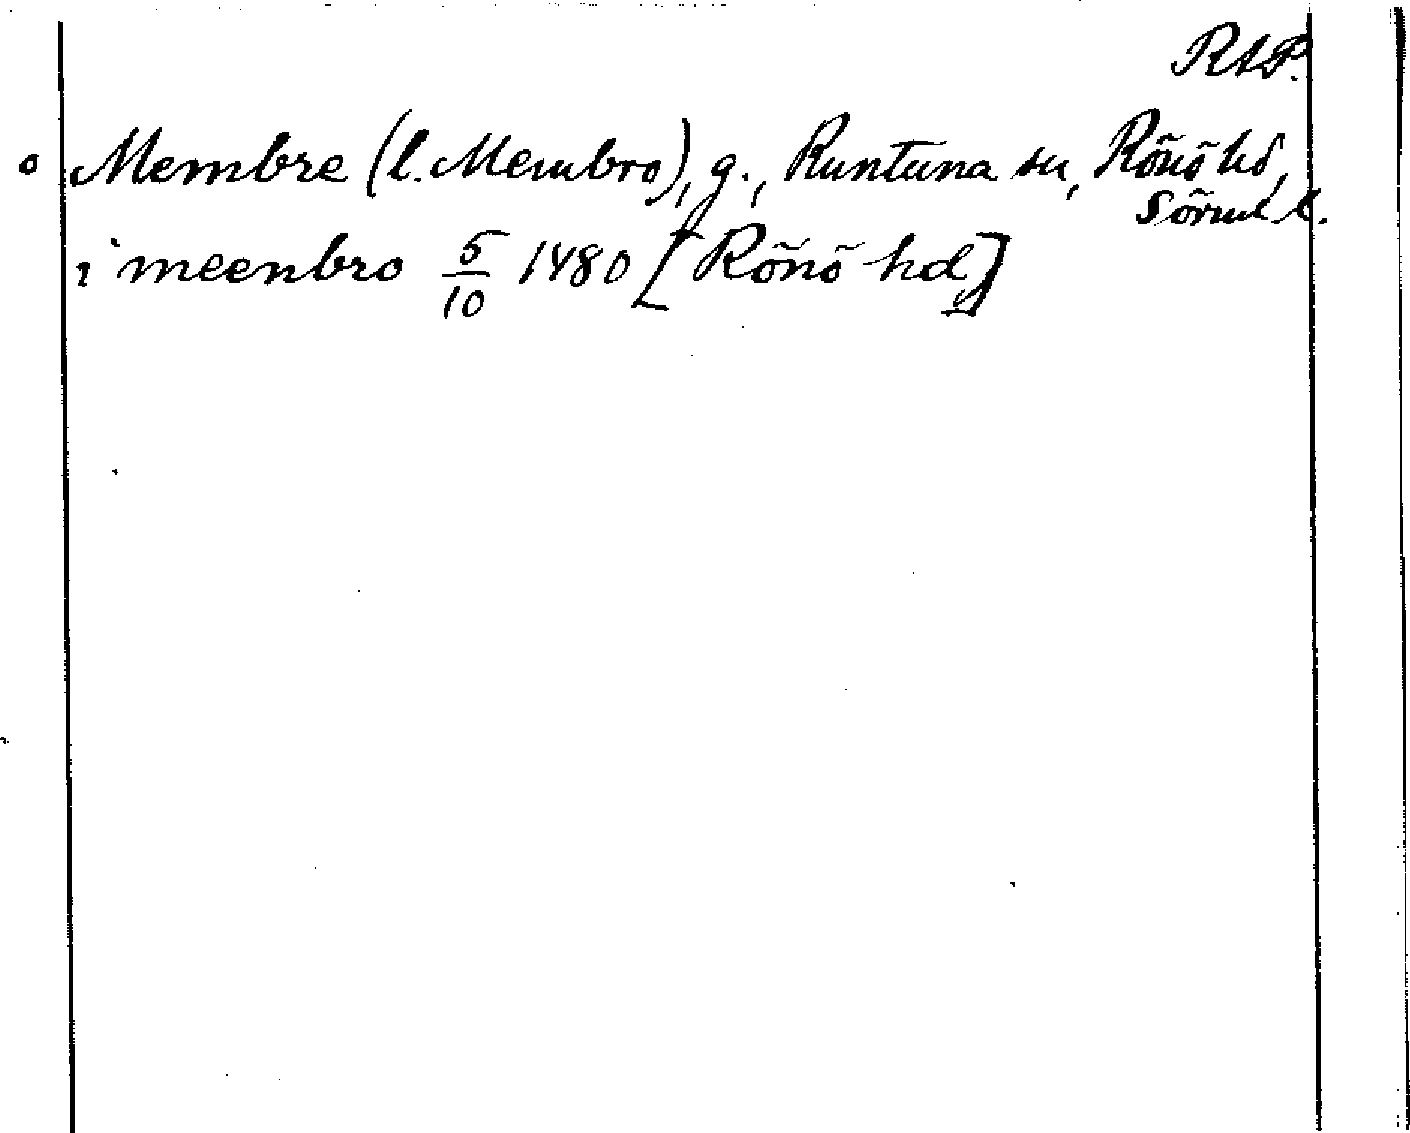 RAP.
o Membre (l. Membro), g., Runtuna sn, Rönö hd,
Sörml l.
i meenbro 5/10 1480 [Rönö hd]